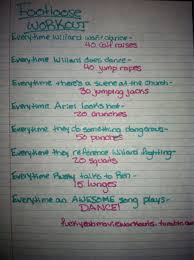 Footloose
WORKOUT
Everytime Willard won't dance-
40 calf raises
Everytime Willard does dance-
40 jump ropes
Everytime there's a scene at the church-
30 jumping jacks
Everytime Ariel looks hot-
20 crunches
Everytime they do something dangerous-
50 punches
Everytime they reference Willard fighting-
20 squats
Everytime Rusty talks to Ren-
15 lunges
Everytime an AWESOME song plays-
DANCE!